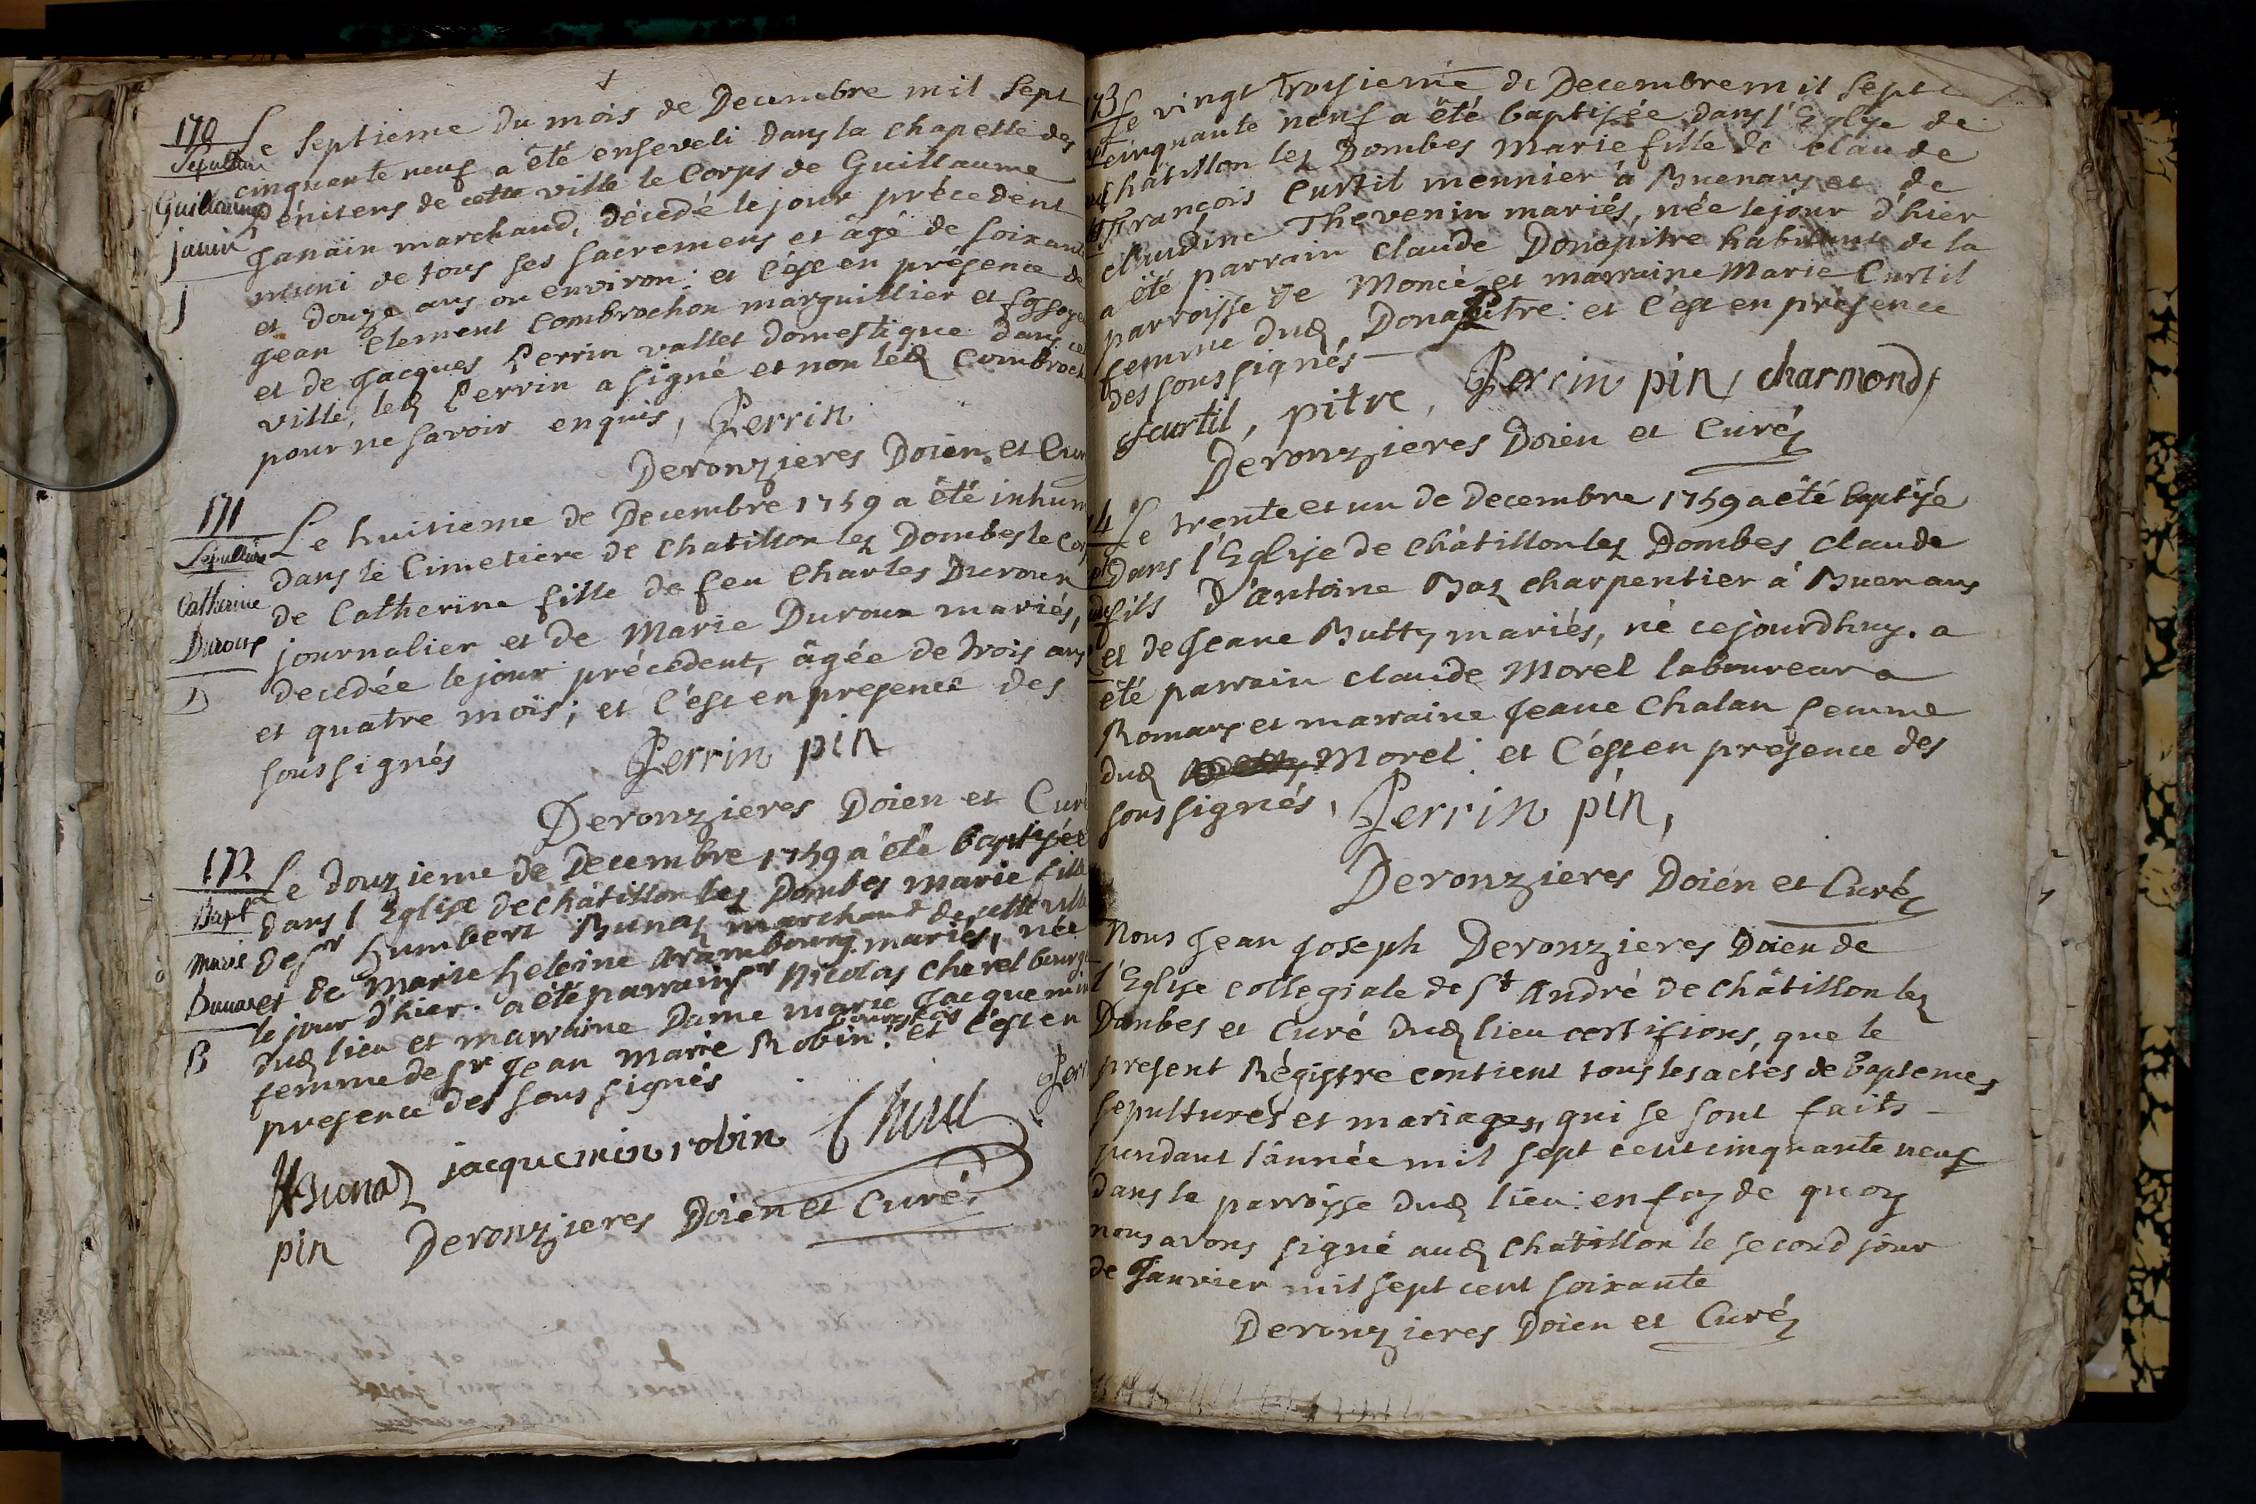 170
Sépulture
Guillaume
janin
J
Le septieme du mois de Decembre mil sept
cinquante neuf a été enseveli dans la chapelle des
Penitens de cette ville le Corps de Guillaume
Janain marchand, décedé le jour précedent
muni de tous ses sacremens et âgé de soixante
et douze ans ou environ: et c'est en présence de
Jean Clement Combrochon marguillier et fossoye
et de Jacques Perrin vallet domestique dans ce
ville, led Perrin a signé et non led Combroch
pour ne savoir enquis, Perrin
Deronzieres Doien et Cur
171
Sépulture
Catherine
Duroux
D
Le huitieme de Decembre 1759 a été inhum
dans le Cimetiere de chatillon les Dombes le Cor
de Catherine fille de feu Charles Duroux
journalier et de Marie Duroux mariés,
decedée le jour précedent, âgée de trois ans
et quatre mois; et c'est en presence des
soussignés Perrin pin
Deronzieres Doien et Curé
172
Bapt
Marie
Bunaz
B
Le douzieme de Decembre 1759 a été baptisée
dans l'Eglise de châtillon les Dombes marie fille
de sr humbert Bunaz marchand de cette ville
et de marie heleine arambourg mariés, née
le jour d'hier. a été parrain sr Nicolas Charel bourge
dud lieu et marraine Dame marie Jacquemin
femme de sr Jean marie Robin: et c'est en
presence des soussignés
HBunaz jacquemin robin Perr
pin Deronzieres Doien et Curé
173
Le vingt troisieme de Decembre mil sept c
cinquante neuf a été baptisée dans l'Eglise de
châtillon les Dombes Marie fille de claude
François Curtil meunier à Buenans et de
claudine Thevenin mariés, née le jour d'hier
a été parrain claude Donapitre habitant de la
parroisse de Moncé et marraine Marie Curtil
femme dud Donapitre: et c'est en présence
des soussignés
fcurtil, pitre, Perrin pin, charmond
Deronzieres Doien et Curé
4
Le trente et un de decembre 1759 a été baptisé
Dans l'Eglise de châtillon les Dombes claude
fils d'antoine Baz charpentier à Buenans
et de Jeane Butty mariés, né cejourdhuy. a
été parrain claude Morel laboureur a
Romans et marraine Jeane Chalan femme
dud Morel: et c'est en presence des
soussignés, Perrin pin,
Deronzieres Doien et Curé
Nous Jean Joseph Deronzieres Doien de
l'Eglise collegiale de st André de châtillon les
Dombes et Curé dud lieu certifions, que le
present Régistre contient tous les actes de baptemes
sepultures et mariages, qui se sont faits
pendant l'année mil sept cent cinquante neuf
dans la parroisse dud lieu: en foy de quoy
nous avons signé aud chatillon le second jour
de Janvier mil sept cent soixante
Deronzieres Doien et Curé